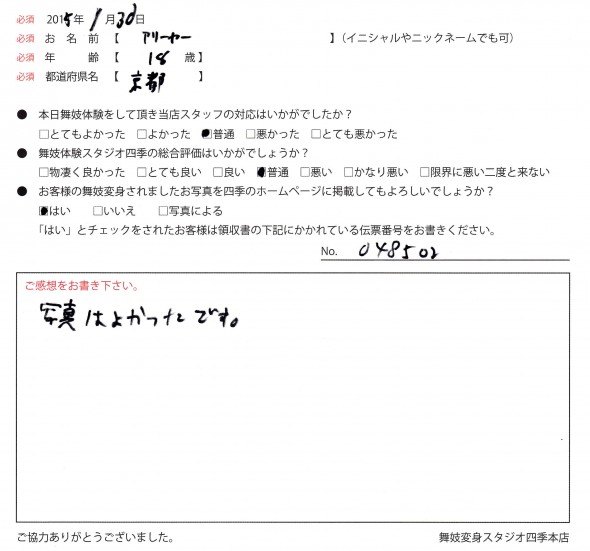 必須 2015年1月30日
必須 お名前【 アリーヤー 】（イニシャルやニックネームでも可）
必須 年齢【 18 歳】
必須 都道府県名【 京都 】
● 本日舞妓体験をして頂き当店スタッフの対応はいかがでしたか？
□とてもよかった □よかった ■普通 □悪かった □とても悪かった
● 舞妓体験スタジオ四季の総合評価はいかがでしょうか？
□物凄く良かった □とても良い □良い ■普通 □悪い □かなり悪い □限界に悪い二度と来ない
● お客様の舞妓変身されましたお写真を四季のホームページに掲載してもよろしいでしょうか？
■はい □いいえ □写真による
「はい」とチェックをされたお客様は領収書の下記にかかれている伝票番号をお書きください。
No. 048502
ご感想をお書き下さい。
写真はよかったです。
ご協力ありがとうございました。 舞妓変身スタジオ四季本店